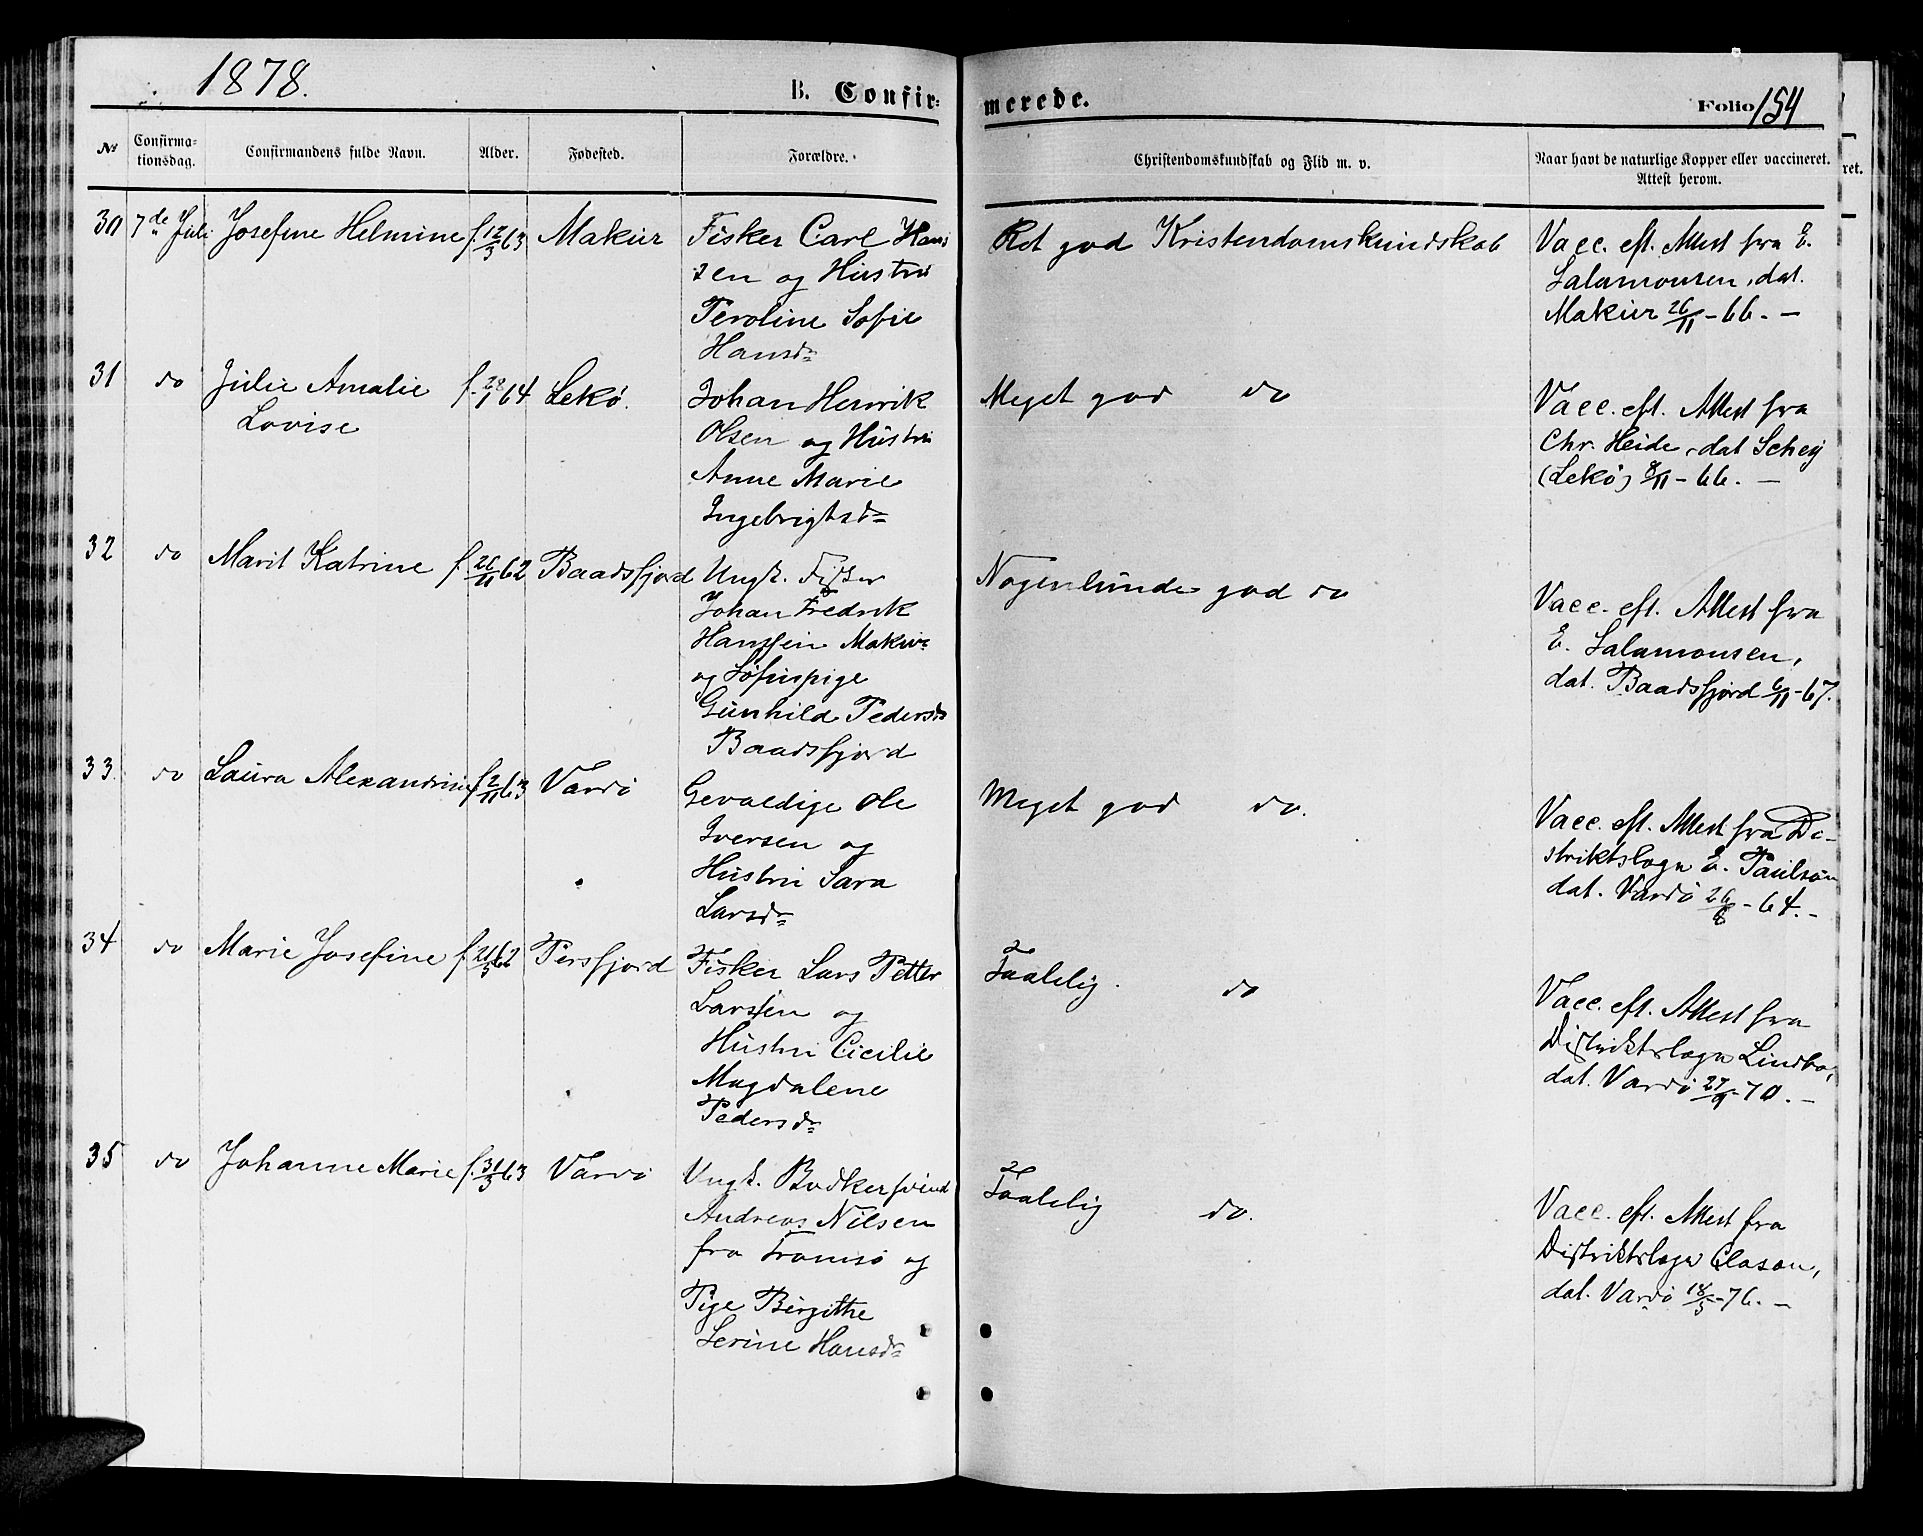 1878.
B. Confir-
merede.
Folio 154
No
Confirma-
tionsdag.
Confirmandens fulde Navn.
Alder.
Fødested.
Forældre.
Christendomskundskab og Flid m. v.
Naar havt de naturlige Kopper eller vaccineret.
Attest herom.
ret.
30 7de Juli Josefine Helmine f. 12/3 63 Makur
Fisker Carl Han-
sen og Hustru
Peroline Sofie
Hansd.
Ret god Kristendomskundskab
Vacc. eft. Attest fra E.
Salamonsen, dat.
Makur 26/11-66. –
31 do Julie Amalie f. 28/1 64 Lekø.
Lovise
Johan Henrik
Olsen og Hustru
Anne Marie
Ingebrigtsd.
Meget god do
Vacc. eft. Attest fra
Chr. Heide, dat Schey
(Lekø) 8/11-66. –
32 do Marit Katrine f. 26/11 62 Baadsfjord
Ungk. Fisker
Johan Fredrik
Hanssen Makur
og Pige
Gunhild Pedersd.
Baadsfjord
Nogenlunde god do
Vacc. eft. Attest fra
E. Salamonsen,
dat. Baadsfjord 6/11-67.
33. do Laura Alexandrine f. 2/11 63 Vardø
Gevaldige Ole
Iversen og
Hustru Sara
Larsd.
Meget god do.
Vacc. eft. Attest fra Di-
striktslæge E. Paulson
dat. Vardø 26/8-64. –
34 do Marie Josefine f. 21/3 62 Persfjord
Fisker Lars Petter
Larssen og
Hustru Cicilie
Magdalene
Pedersd.
Taalelig. do
Vacc. eft. Attest fra
Distriktslæge Lindbo,
dat. Vardø 27/9-70. –
35 do Johanne Marie f. 31/3 63 Vardø
Ungk. Bødkersvend
Andreas Nilsen
fra Tromsø og
Pige Birgithe
Serine Hansd.
Taalelig do.
Vacc. eft. Attest fra
Distriktslæge Clason,
dat. Vardø 18/5-76. –